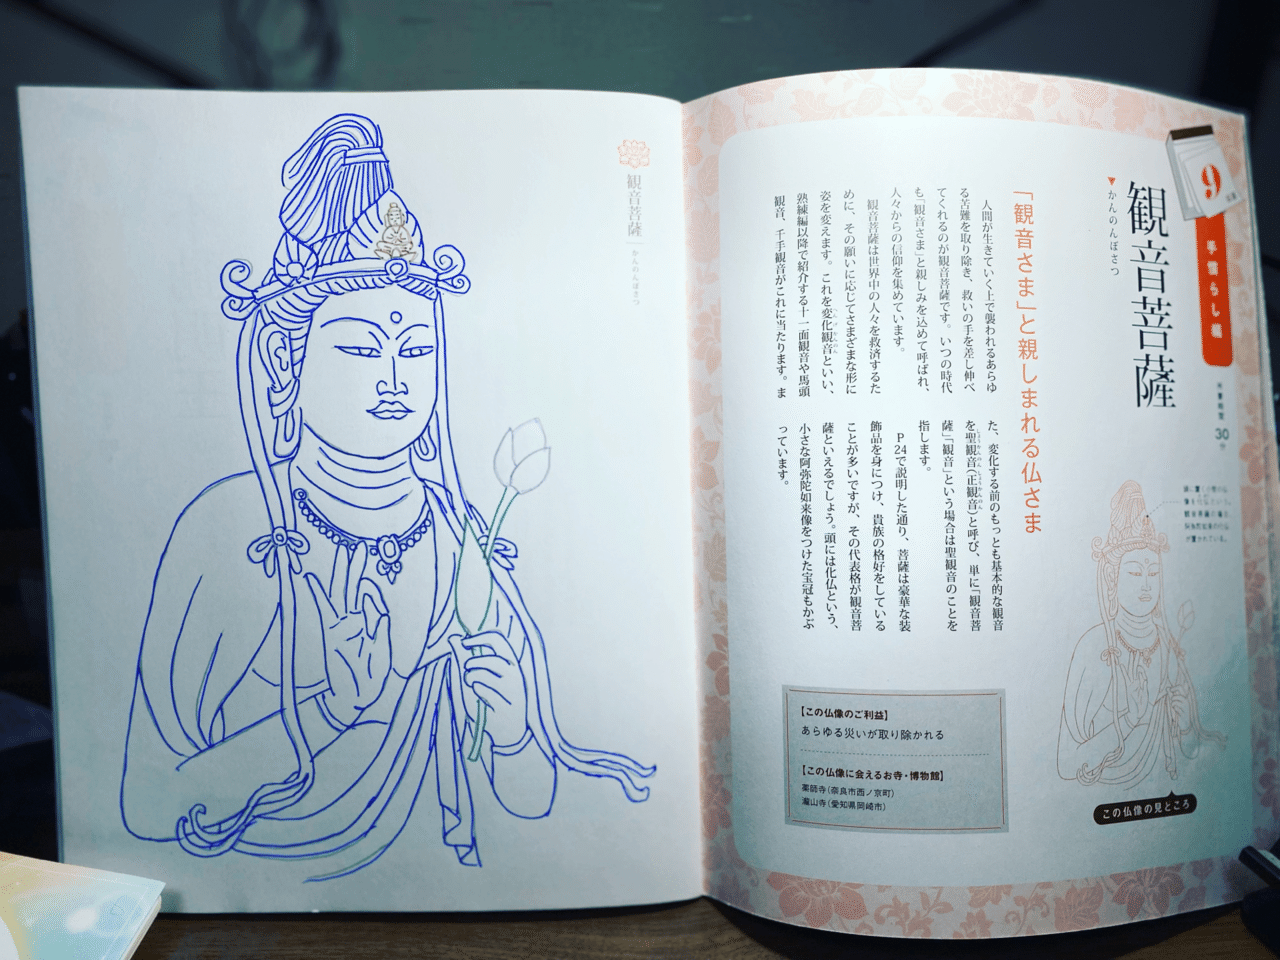 観音菩薩
かんのんぼさつ
9
手慣らし編
所要時間 30分
観音菩薩
かんのんぼさつ
「観音さま」と親しまれる仏さま
人間が生きていく上で襲われるあらゆ
る苦難を取り除き、救いの手を差し伸べ
てくれるのが観音菩薩です。いつの時代
も「観音さま」と親しみを込めて呼ばれ、
人々からの信仰を集めています。
観音菩薩は世界中の人々を救済するた
めに、その願いに応じてさまざまな形に
姿を変えます。これを変化観音といい、
熟練編以降で紹介する十一面観音や馬頭
観音、千手観音がこれに当たります。ま
た、変化する前のもっとも基本的な観音
を聖観音(正観音)と呼び、単に「観音菩
薩」「観音」という場合は聖観音のことを
指します。
P24で説明した通り、菩薩は豪華な装
飾品を身につけ、貴族の格好をしている
ことが多いですが、その代表格が観音菩
薩といえるでしょう。頭には化仏という、
小さな阿弥陀如来像をつけた宝冠もかぶ
っています。
【この仏像のご利益】
あらゆる災いが取り除かれる
【この仏像に会えるお寺・博物館】
薬師寺(奈良市西ノ京町)
瀧山寺(愛知県岡崎市)
この仏像の見どころ